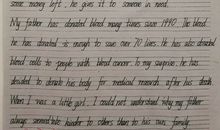 some money left, he gives it to someone in need.
My father has donated blood many times since 1990. The blood
he has donated is enough to save over 70 lives. He has also donated
blood cells to people with blood cancer. To my surprise, he has
decided to donate his body for medical research after his death.
When I was a little girl, I could not understand why my father
always seemed kinder to others than to his own family.